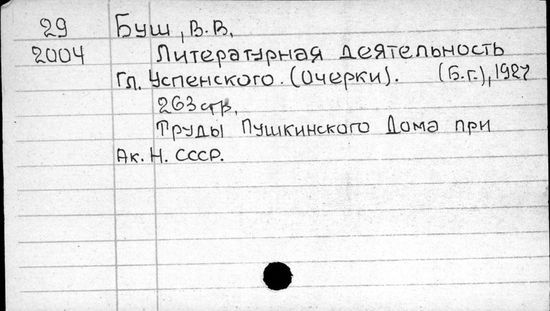 29 Буш, В.В.
2004 Литературная деятельность
Гл. Успенского. (Очерки). (Б.г.), 1927
263 стр.
Труды Пушкинского Дома при
Ак. Н. СССР.